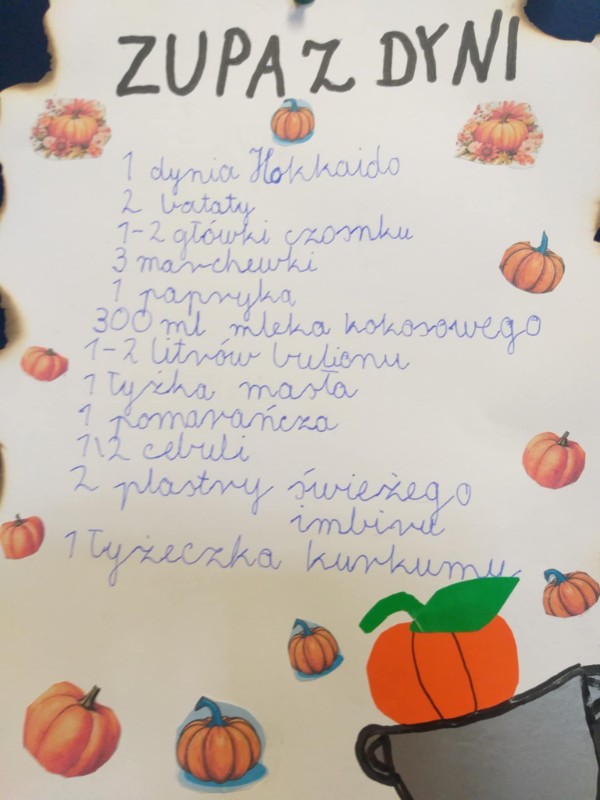 ZUPA Z DYNI
1 dynia Hokkaido
2 bataty
1-2 główki czosnku
3 marchewki
1 papryka
300 ml mleka kokosowego
1-2 litrów bulionu
1 łyżka masła
1 pomarańcza
1\2 cebuli
2 plastry świeżego
imbiru
1 łyżeczka kurkumy